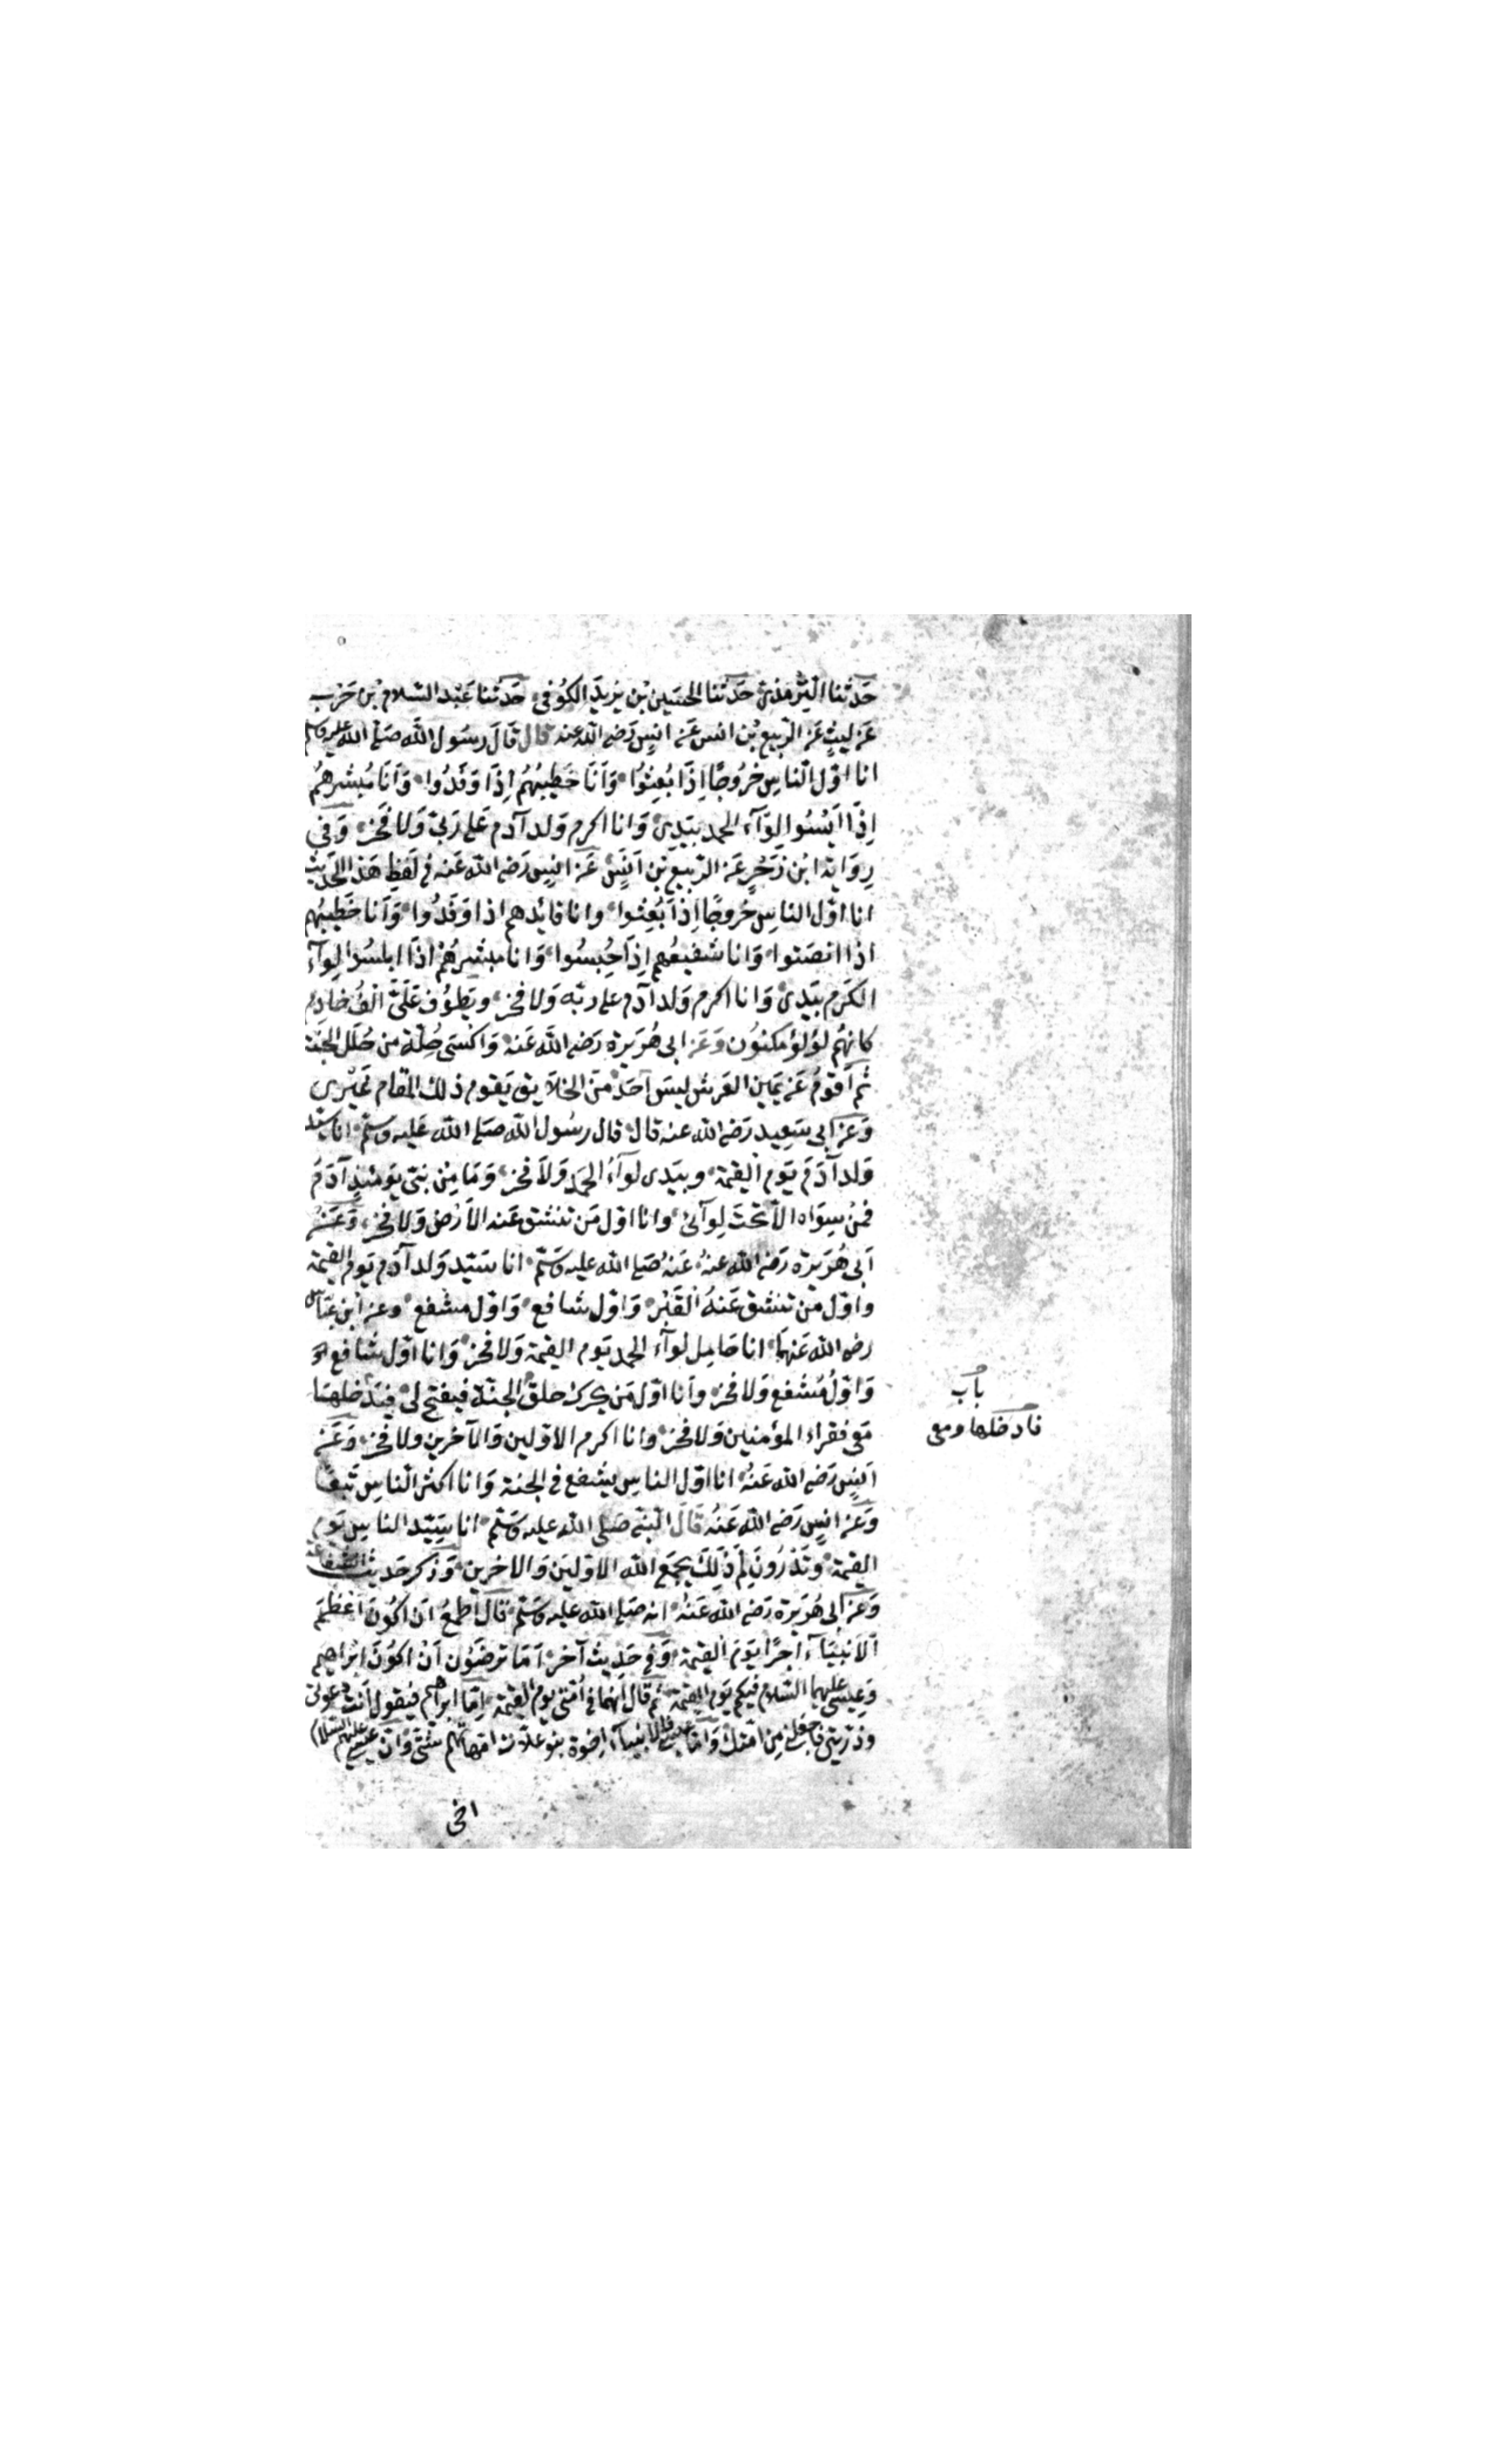 حَدثنا الترمذى حَدثنا الحسَين بن يزيدَ الكوُفى حَدثنا عَبْد السّلام بن حَرْب
عَن ليثٍ عَن الربيع بُن انس عَن انسٍ رَضى الله عنه قال قَالَ رسُول الله صَلى الله عليه وسلم
انا اوّل الناسِ خرُوجًا اِذَا بُعِثُوا وَأنَا خَطِيبُهُم اِذَا وَفَدُوا وَأنَا مُبَشّرهُم
اِذَا اَيْسُوا لِوَآء الحمد بيَدِى وَانا اكرم وَلد آدم عَلى رَبّى وَلا فَخر وَفى
رِوَاية ابن زَحْرٍ عَن الربيع بن اَنَسٍ عَن انسٍ رَضى الله عَنه فى لَفظِ هَذا الحَديث
انا اوّل الناسِ خرُوجًا اِذَا بُعِثوا وانا قائدهم اذا وَفَدُوا وَأنا خَطِيبُهم
اذا انصَتوا وَانا شَفيعُهم اِذَا حُبِسُوا وَانا مبشرهُمْ اذَا ابلسُوا لِوآء
الكَرَم بيَدِى وَانا اكرم وَلد آدم على ربّه وَلا فخر ويَطوُف عَلَىّ الْفُ خادِم
كانهُم لؤلؤ مكنوُن وَعَن ابى هُرَيرة رَضى الله عَنه وَاكسَى حُلّة من حُلل الجَنّة
ثم اَقومُ عَن يَمين العَرش ليسَ اَحَدٌ مِنَ الخلايق يَقوم ذلك المَقام غَيْرى
وَعَن ابى سَعِيد رَضى الله عنه قال قال رسُول الله صَلى الله عَليه وسَلم انا سَيّد
وَلد آدَم يَوم القيمة وبيَدى لوآءُ الحمَد وَلَا فخر وَمَا مِن نبى يَومئذٍ آدَمُ
فمَنْ سِوَاه الا تحْتَ لِوآئى وانا اوّل مَن تنشق عَنه الاَرْض وَلا فخر وَعَن
اَبى هُرَيرة رَضى الله عنهُ عَنهُ صَلى الله عليه وَسَلم انا سَيّد وَلد آدَم يَوم القيمة
واوّل مَن تنشق عَنهُ القَبْر وَاوّل شافع وَاوّل مشفع وعن ابْن عَبّاس
رضى الله عَنهمَا انا حَامِل لوآء الحمد يَوم القيمة وَلا فخر وَانا اوّل شافع
وَاوّلُ مُشفع وَلا فخر وَأنا اوّل مَن يحرك حلق الجنّة فيفتح لى فيَدْخلهَا
مَعى فقراء المؤمنين وَلا فخر وانا اكرم الاوّلين وَالآخرين ولا فخر وَعَن
باب
فادخلها ومعى
اَنَسٍ رَضى الله عَنْهُ انا اوّل الناسِ يشفع فى الجنة وَانا اكثر الناسِ تَبعًا
وَعَن انسٍ رَضى الله عَنْهُ قَالَ النّبى صَلى الله عليه وسَلم انا سَيّد الناس يَوم
القيمة وتَدْرُونَ لِمَ ذَلِكَ يجمَع الله الاوّلينَ وَالاخرين وَذكر حَديث الشفاعة
وَعَن ابى هُرَيرة رَضى الله عَنْهُ انه صَلى الله عليه وسَلم قال اَطْمعُ اَن اكُونَ اَعْظَمَ
اَلانبيَآء اَجرًا يَوَم القيمة وَفى حَدِيث آخر اَمَا ترضَوْن اَنْ اكُوُنَ ابْراهيم
وَعِيسَى عليهما السّلام فيكم يَوَم القيمة ثم قال انهما فى اُمّتى يوم القيمة اِمّا ابراهيم فيَقول اَنتَ دعوتى
وذرّيتى فاجعَلنى مِن امّتك وَاما عيسى فالانبياء اِخوة بنو علّات امّهاتهم شتى وَان عيسى عليهم السّلام
اخى